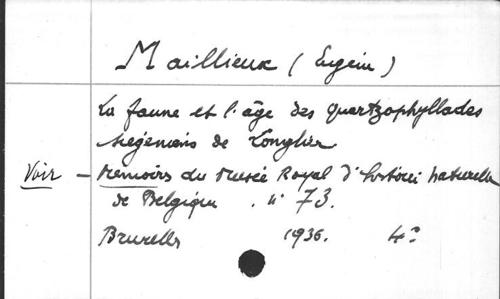 Maillieux (Eugène)
La faune et l'âge des quartzophyllades
siegeniens de Longlier
Voir — Memoirs du Musée Royal d'histoire naturelle
de Belgique. n° 73.
Bruxelles 1936. 4°